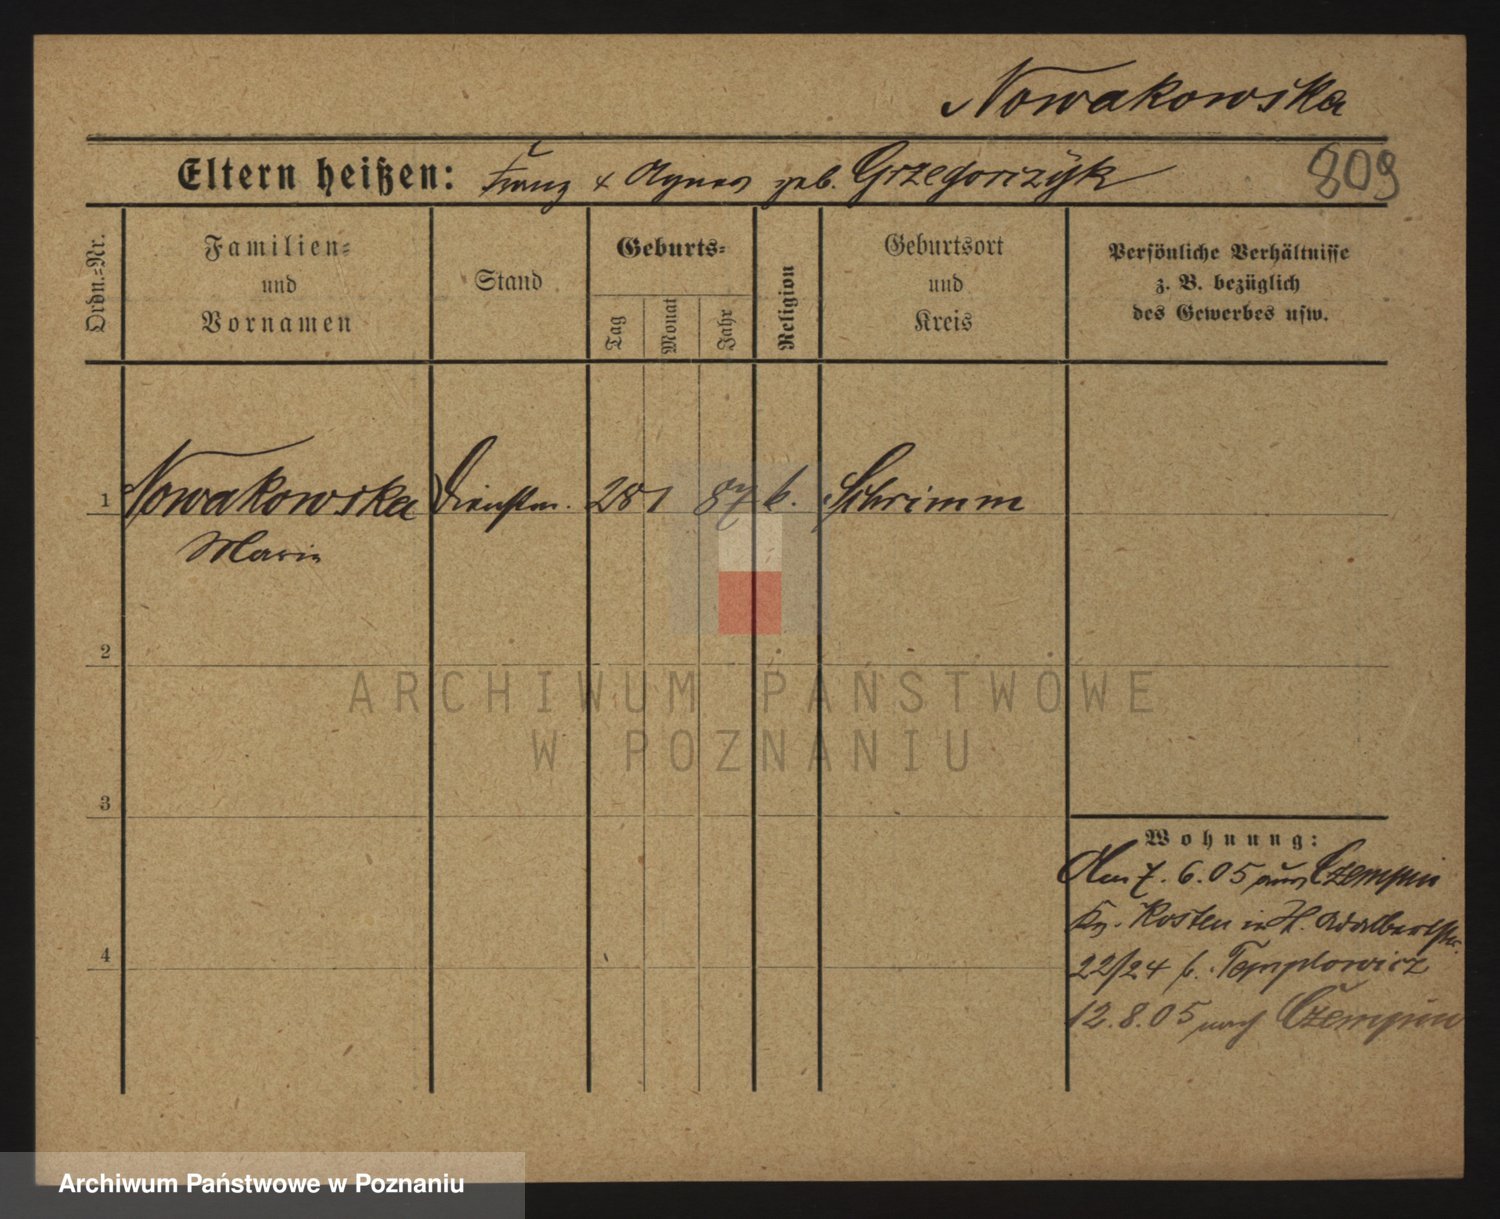 Nowakowska
Eltern heißen: Franz & Agnes geb. Grzegorczyk
809
Ordn.=Nr.
Familien=
und
Vornamen
Stand
Geburts=
Tag
Monat
Jahr
Religion
Geburtsort
und
Kreis
Persönliche Verhältnisse
z. B. bezüglich
des Gewerbes usw.
1 Nowakowska Dienstm. 28 1 87 k. Schrimm
Marie
2
3
4
ARCHIWUM PAŃSTWOWE
W POZNANIU
Wohnung:
Am 7. 6. 05 aus Czempin
Kr. Kosten in H. Adalbertstr.
22/24 b. Templowicz
12. 8. 05 nach Czempin
Archiwum Państwowe w Poznaniu